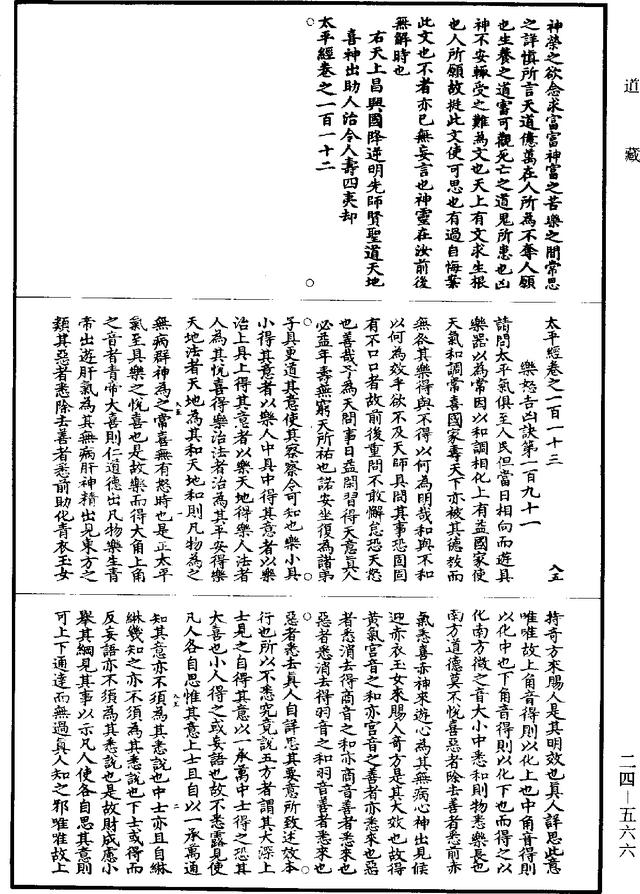 道藏
神榮之欲念求富富神富之苦樂之間常思
之詳慎所言天道億萬在人所為不奪人願
也生養之道富可觀死亡之道鬼所患也凶
神不安輒受之難為文也天上有文求生根
也人所願故挺此文使可思也有過自悔案
此文也不者亦已無妄言也神靈在汝前後
無解時也
右天上昌興國降逆明先師賢聖道天地
喜神出助人治令人壽四夷却
太平經卷之一百一十二
太平經卷之一百一十三
樂怒吉凶訣第一百九十一
請問太平氣俱至人民但當日相向而遊具
樂器以為常因以和調相化上有益國家使
天氣和調常喜國家壽天下亦被其德教而
無咎其樂得與不得以何為明哉和與不和
以何為效乎欲不及天師具問其事恐固固
有不口口者故前後重問不敢懈怠恐天怒
也善哉子為天問事日益閑習得天意真人
必益年壽無窮天所祐也諾安坐復為諸弟
子具更道其意使其察察令可知也樂小具
小得其意者以樂人中具中得其意者以樂
治上具上得其意者以樂天地得樂人法者
人為其悅喜得樂治法者治為其平安得樂
天地法者天地為其和天地和則凡物為之
無病群神為之常喜無有怒時也是正太平
氣至具樂之悅喜也是故樂而得大角上角
之音者青帝大喜則仁道德出凡物樂生青
帝出遊肝氣為其無病肝神精出見東方之
類其惡者悉除去善者悉前助化青衣玉女
持奇方來賜人是其明效也真人詳思此意
唯唯故上角音得則以化上也中角音得則
以化中也下角音得則以化下也而得之以
化南方徵之音大小中悉和則物悉樂長也
南方道德莫不悅喜惡者除去善者悉前赤
氣悉喜赤神來遊心為其無病心神出見候
迎赤衣玉女來賜人奇方是其大效也故得
黃氣宮音之和亦宮音之善者亦悉來也惡
者悉消去得商音之和亦商音善者悉來也
惡者悉消去得羽音之和羽音善者悉來也
惡者悉去真人自詳思其要意所致述效本
行也所以不悉究竟說五方者謂其大深上
士見之自得其意以一承萬中士得之恐其
大喜也小人得之或妄語也故不悉露見使
凡人各自思惟其意上士且自以一承萬通
知其意亦不須為其悉說也中士亦且自綝
綝幾知之亦不須為其悉說也下士或得而
反妄語亦不須為其悉說也是故財成慮小
舉其綱見其事以示凡人使各自思其意則
可上下通達而無過真人知之邪唯唯故上
二四—五六六